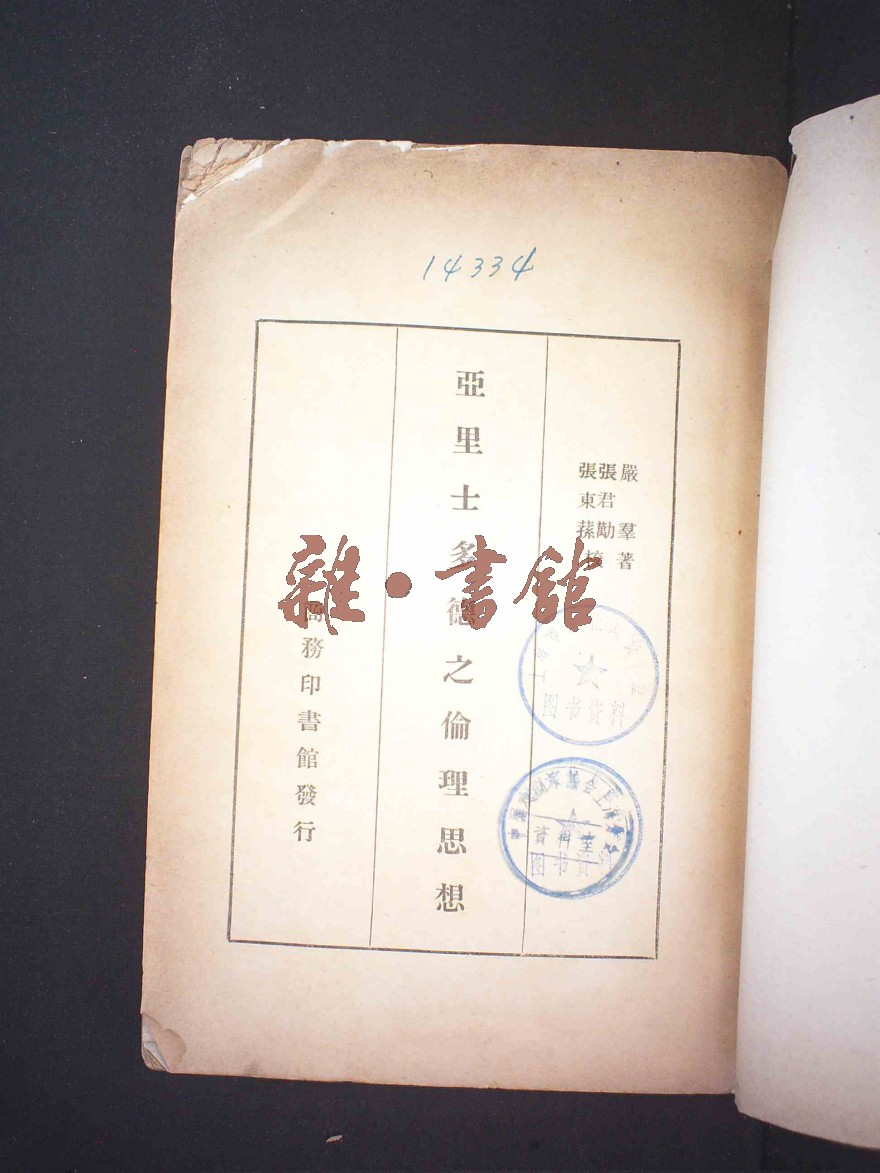 14334
嚴羣著
張君勱
張東蓀校
亞里士多德之倫理思想
商務印書館發行
雜·書館
图书资料
資料室
图书資料